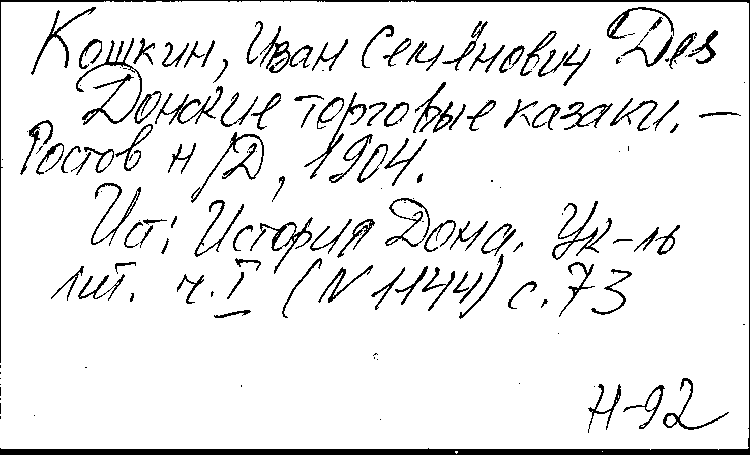 Кошкин, Иван Семёнович Des
Донские торговые казаки. –
Ростов н/Д, 1904.
Ист: История Дона. Ук-ль
лит. ч. I (N 1144) с. 73
Н-92